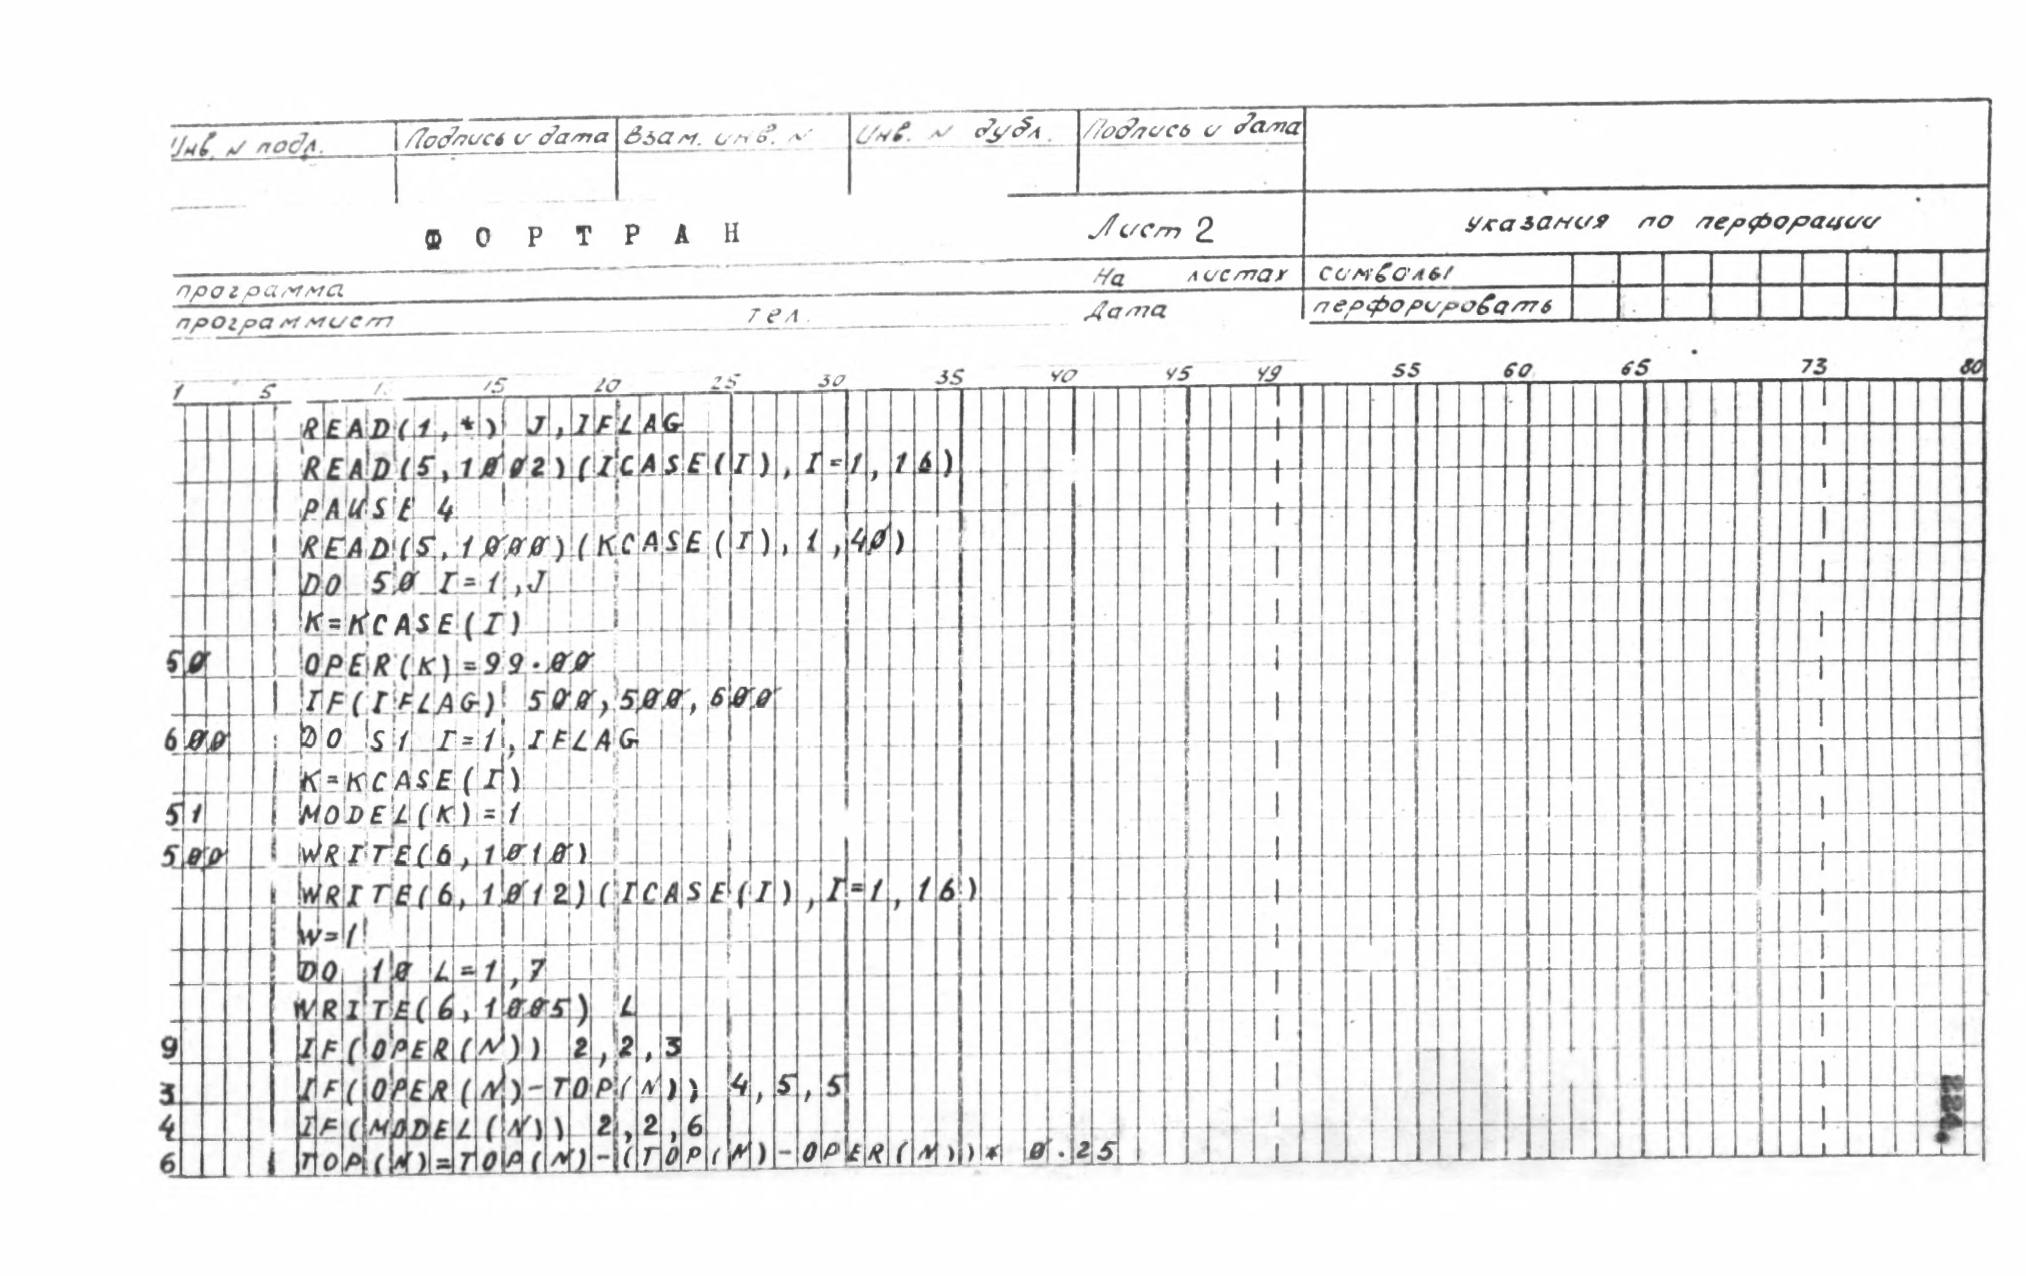 Инв. N подл. Подпись и дата Взам. инв. N Инв. N дубл. Подпись и дата
ФОРТРАН Лист 2 указания по перфорации
программа На листах символы
программист тел. Дата перфорировать
1 5 15 20 25 30 35 40 45 49 55 60 65 73 80
READ(1,*) J,IFLAG
READ(5,1002)(ICASE(I),I=1,16)
PAUSE 4
READ(5,1000)(KCASE(I),1,40)
DO 50 I=1,J
K=KCASE(I)
50 OPER(K)=99.00
IF(IFLAG) 500,500,600
600 DO S1 I=1,IFLAG
K=KCASE(I)
51 MODEL(K)=1
500 WRITE(6,1010)
WRITE(6,1012)(ICASE(I),I=1,16)
W=1
DO 10 L=1,7
WRITE(6,1005) L
9 IF(OPER(N)) 2,2,3
3 IF(OPER(N)-TOP(N)) 4,5,5
4 IF(MODEL(N)) 2,2,6
6 TOP(N)=TOP(N)-(TOP(N)-OPER(N))* 0.25